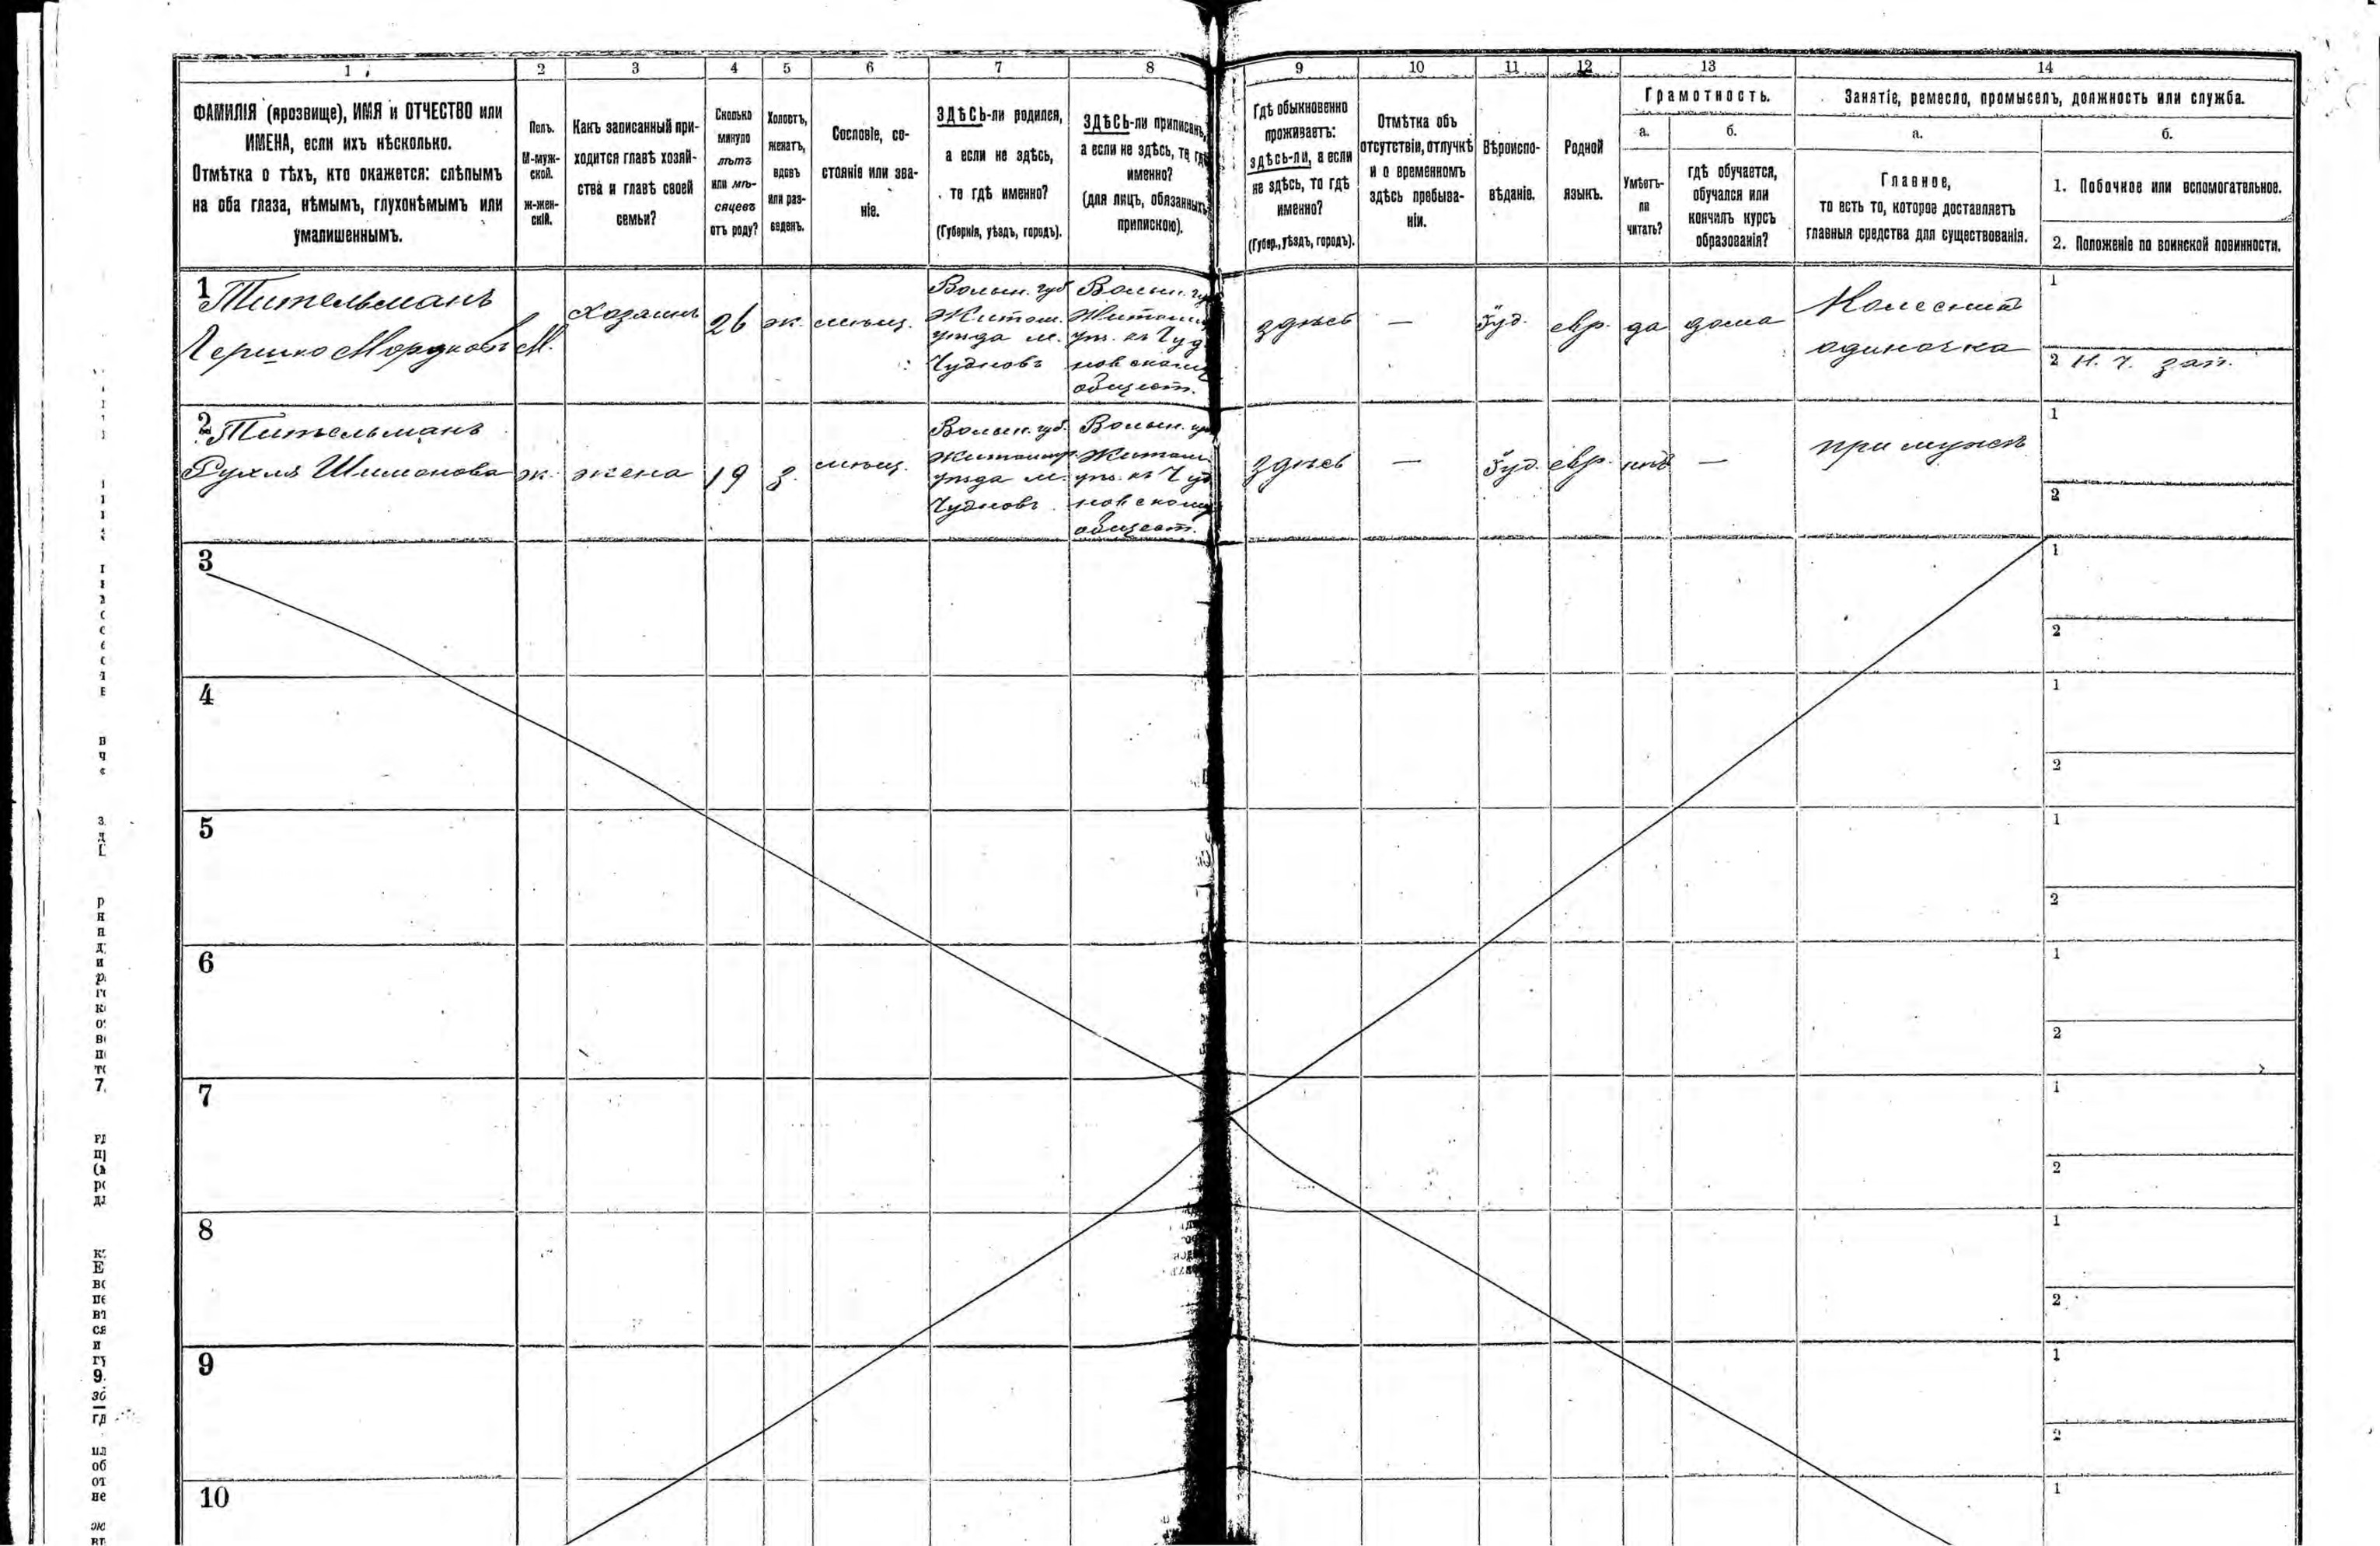 1
2
3
4
5
6
7
8
9
10
11
12
13
14
ФАМИЛІЯ (прозвище), ИМЯ и ОТЧЕСТВО или
ИМЕНА, если ихъ нѣсколько.
Отмѣтка о тѣхъ, кто окажется: слѣпымъ
на оба глаза, нѣмымъ, глухонѣмымъ или
умалишеннымъ.
Полъ.
М-муж-
ской.
ж-жен-
скій.
Какъ записанный при-
ходится главѣ хозяй-
ства и главѣ своей
семьи?
Сколько
минуло
лѣтъ
или мѣ-
сяцевъ
отъ роду?
Холостъ,
женатъ,
вдовъ
или раз-
веденъ.
Сословіе, со-
стояніе или зва-
ніе.
ЗДѢСЬ-ли родился,
а если не здѣсь,
то гдѣ именно?
(Губернія, уѣздъ, городъ).
ЗДѢСЬ-ли приписанъ,
а если не здѣсь, то гдѣ
именно?
(для лицъ, обязанныхъ
припискою).
Гдѣ обыкновенно
проживаетъ:
здѣсь-ли, а если
не здѣсь, то гдѣ
именно?
(Губер., уѣздъ, городъ).
Отмѣтка объ
отсутствіи, отлучкѣ
и о временномъ
здѣсь пребыва-
ніи.
Вѣроиспо-
вѣданіе.
Родной
языкъ.
Грамотность.
а.
Умѣетъ-
ли
читать?
б.
гдѣ обучается,
обучался или
кончилъ курсъ
образованія?
Занятіе, ремесло, промыселъ, должность или служба.
а.
Главное,
то есть то, которое доставляетъ
главныя средства для существованія.
б.
1. Побочное или вспомогательное.
2. Положеніе по воинской повинности.
1
Тительманъ
Гершко Мордковъ
М.
хозяинъ
26
ж.
мѣщ.
Волын. губ
Житом.
уѣзда м.
Чудновъ
Волын. гу
Житоми
уѣз. къ Чуд
новскому
общест.
здѣсь
—
Іуд.
евр.
да
дома
Колесник
одиночка
1
2 н. ч. зап.
2
Тительманъ
Рухля Шимонова
ж.
жена
19
з.
мѣщ.
Волын. губ.
Житомир.
уѣзда м.
Чудновъ
Волын. гу
Житом.
уѣз. къ Чуд
новскому
общест.
здѣсь
—
Іуд.
евр.
нѣтъ
—
при мужѣ
1
2
3
1
2
4
1
2
5
1
2
6
1
2
7
1
2
8
1
2
9
1
2
10
1